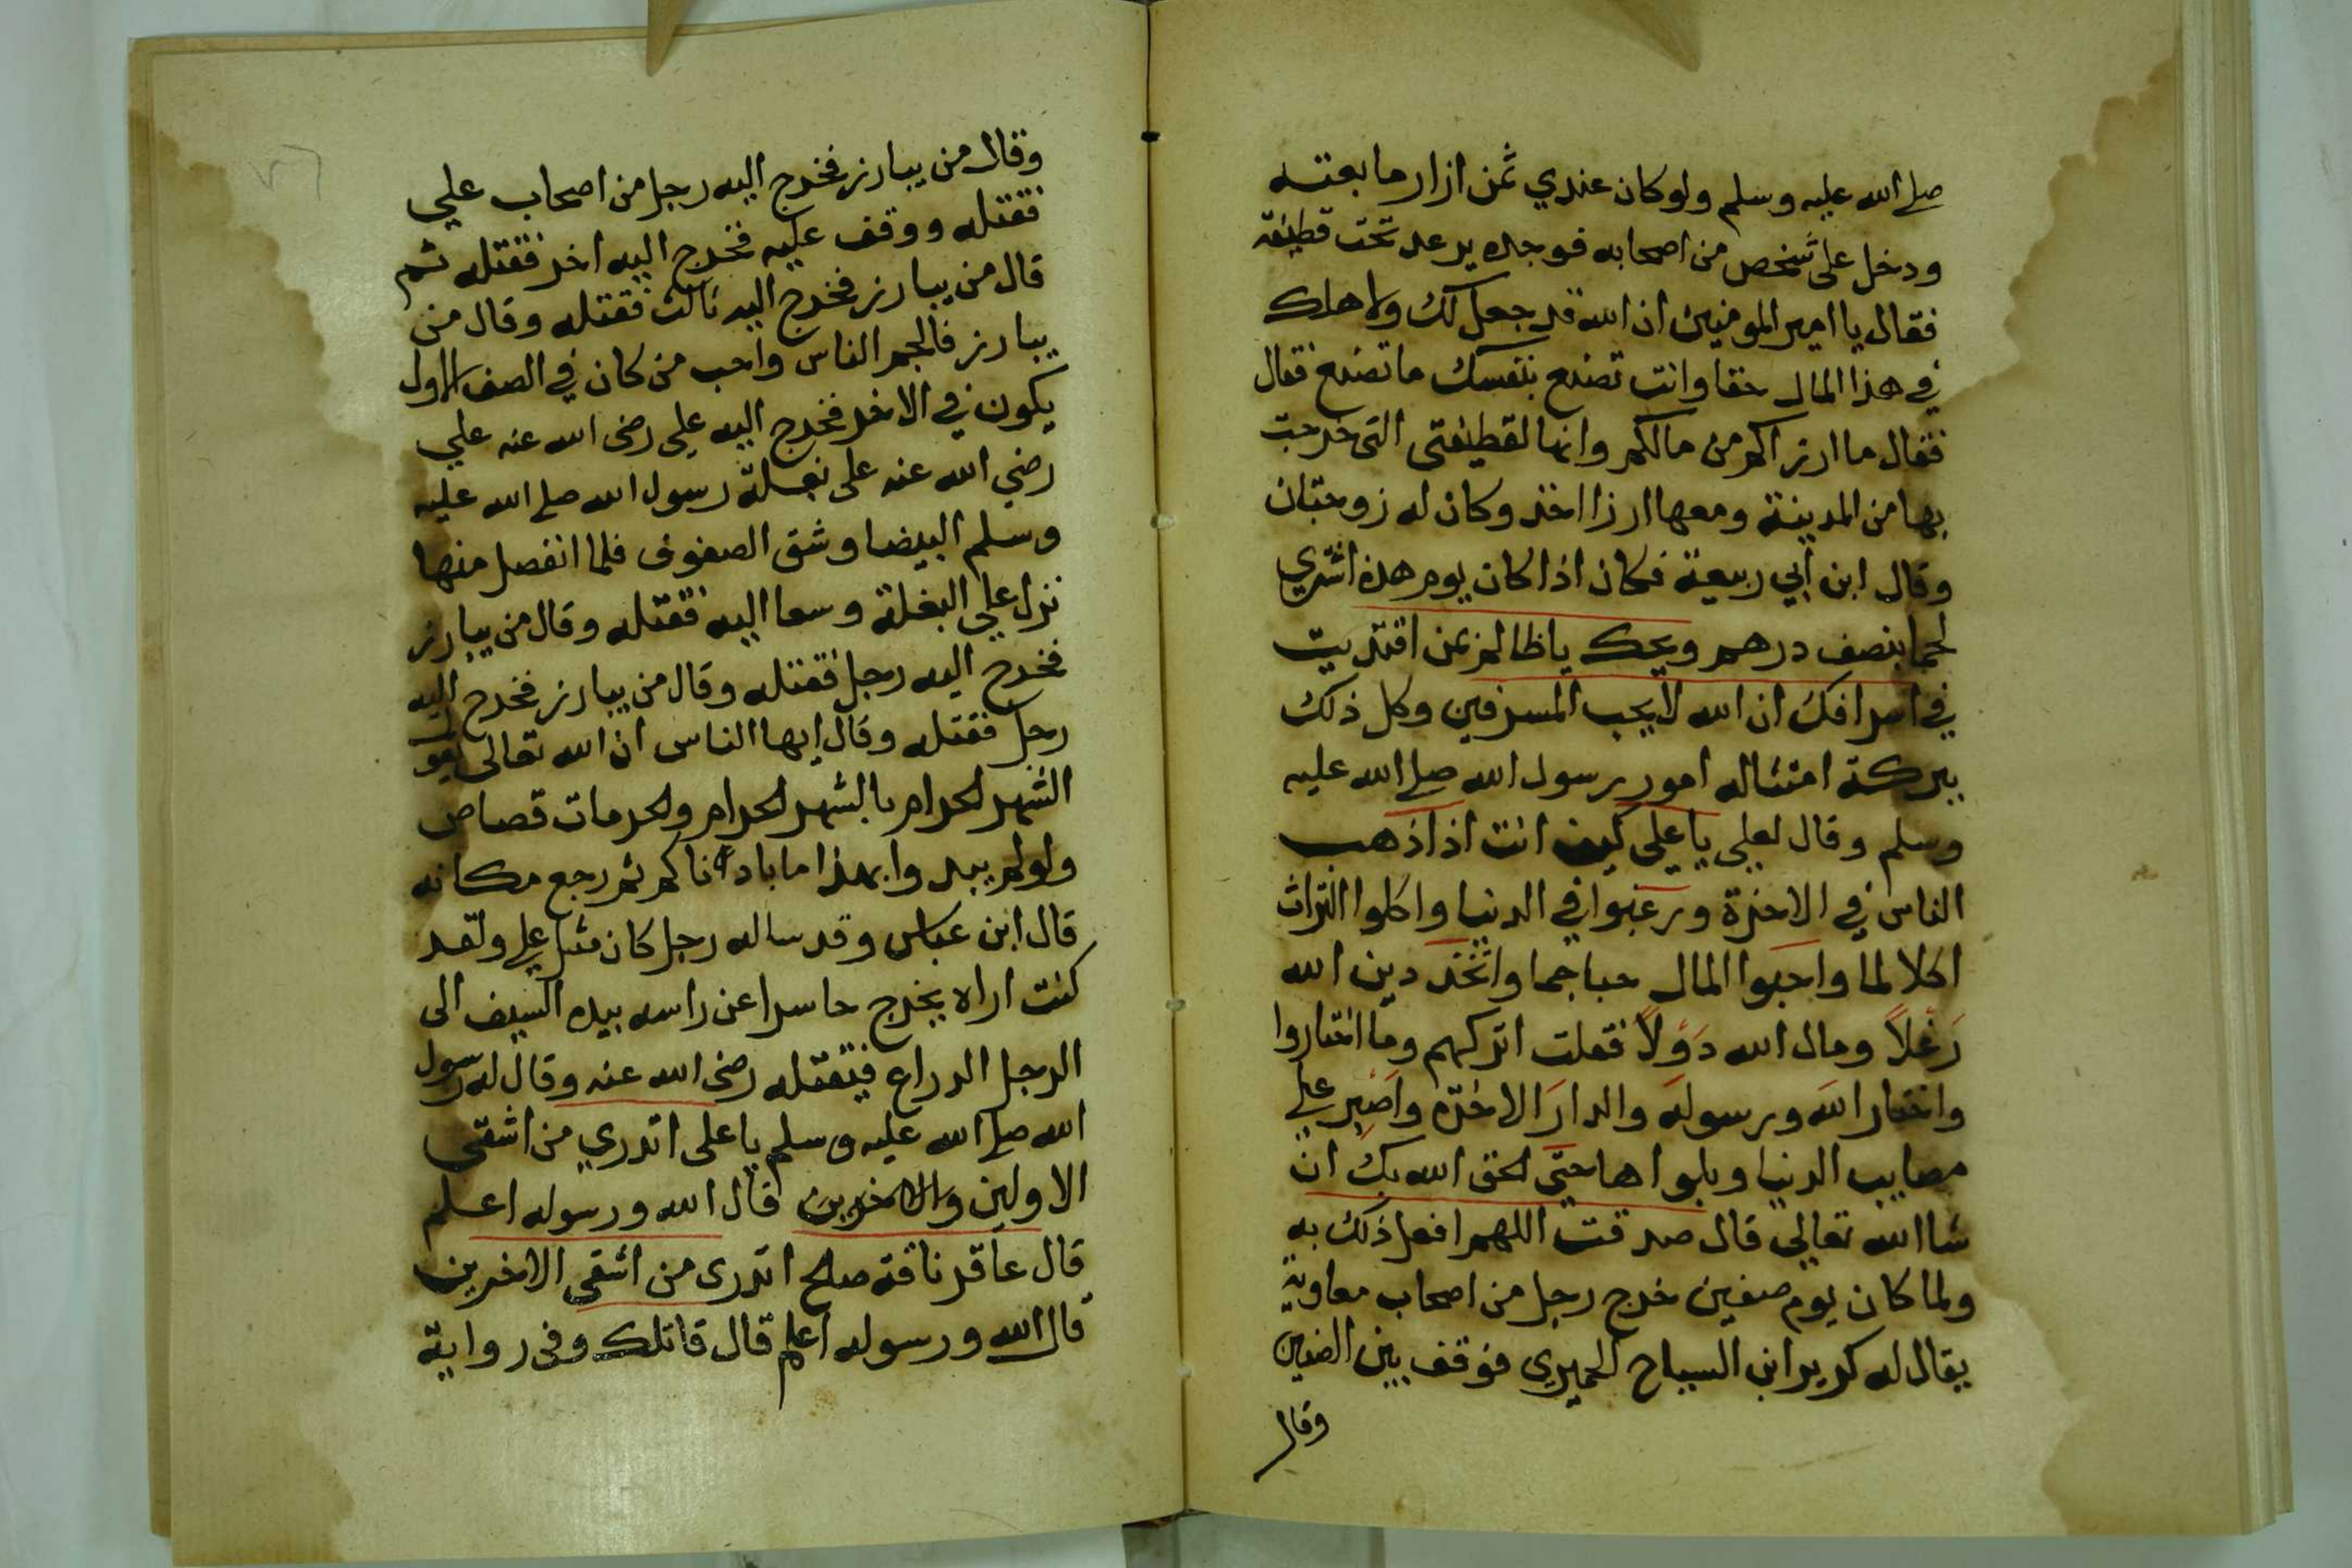 صلى الله عليه وسلم ولو كان عندي ثمن ازار ما بعته
ودخل على شخص من اصحابه فوجده يرعد تحت قطيفة
فقال يا امير المومنين ان الله قد جعل لك ولاهلك
في هذا المال حقا وانت تصنع بنفسك ما تصنع فقال
فقال ما ارزاكم من مالكم وانها لقطيفتى التى خرجت
بها من المدينة ومعها ارزا اخذ وكان له زوجتان
وقال ابن ابي ربيعة فكان اذا كان يوم هذه اشترى
لحما بنصف درهم ويحك يا ظالم بمن اقتديت
في اسرافك ان الله لا يحب المسرفين وكل ذلك
ببركة امتثاله امور رسول الله صلى الله عليه
وسلم وقال لعلى يا على كيف انت اذا ذهب
الناس في الاخرة ورغبوا في الدنيا واكلوا التراث
اكلا لما واحبوا المال حبا جما واتخذ دين الله
دَغَلاً ومال الله دَوَلاً فقلت اتركهم وما اختاروا
واختار الله ورسوله والدار الاخرة واصبر على
مصايب الدنيا وبلواها حتى الحق الله بك ان
شا الله تعالى قال صدقت اللهم افعل ذلك به
ولما كان يوم صفين خرج رجل من اصحاب معاوية
يقال له كريرابن السباح الحميرى فوقف بين الصفين
وقال
وقال من يبارز فخرج اليه رجل من اصحاب علي
فقتله ووقف عليه فخرج اليه اخر فقتله ثم
قال من يبارز فخرج اليه ثالث فقتله وقال من
يبارز فالجم الناس واحب من كان في الصف الاول
يكون في الاخر فخرج اليه على رضى الله عنه علي
رضي الله عنه على بغلة رسول الله صلى الله عليه
وسلم البيضا وشق الصفوف فلما انفصل منها
نزل علي البغلة وسعا اليه فقتله وقال من يبارز
فخرج اليه رجل فقتله وقال من يبارز فخرج اليه
رجل فقتله وقال ايها الناس ان الله تعالى يقول
الشهر الحرام بالشهر الحرام والحرمات قصاص
ولو لم يبدوا بهذا ما بادأناكم ثم رجع مكانه
قال ابن عباس وقد ساله رجل كان مثل على ولقد
كنت اراه يخرج حاسرا عن راسه بيده السيف الى
الرجل الدراع فيقتله رضى الله عنه وقال له رسول
الله صلى الله عليه وسلم يا على اتدري من اشقى
الاولين والاخرين قال الله ورسوله اعلم
قال عاقر ناقة صلح اتدرى من اشقى الاخرين
قال الله ورسوله اعلم قال قاتلك وفى رواية